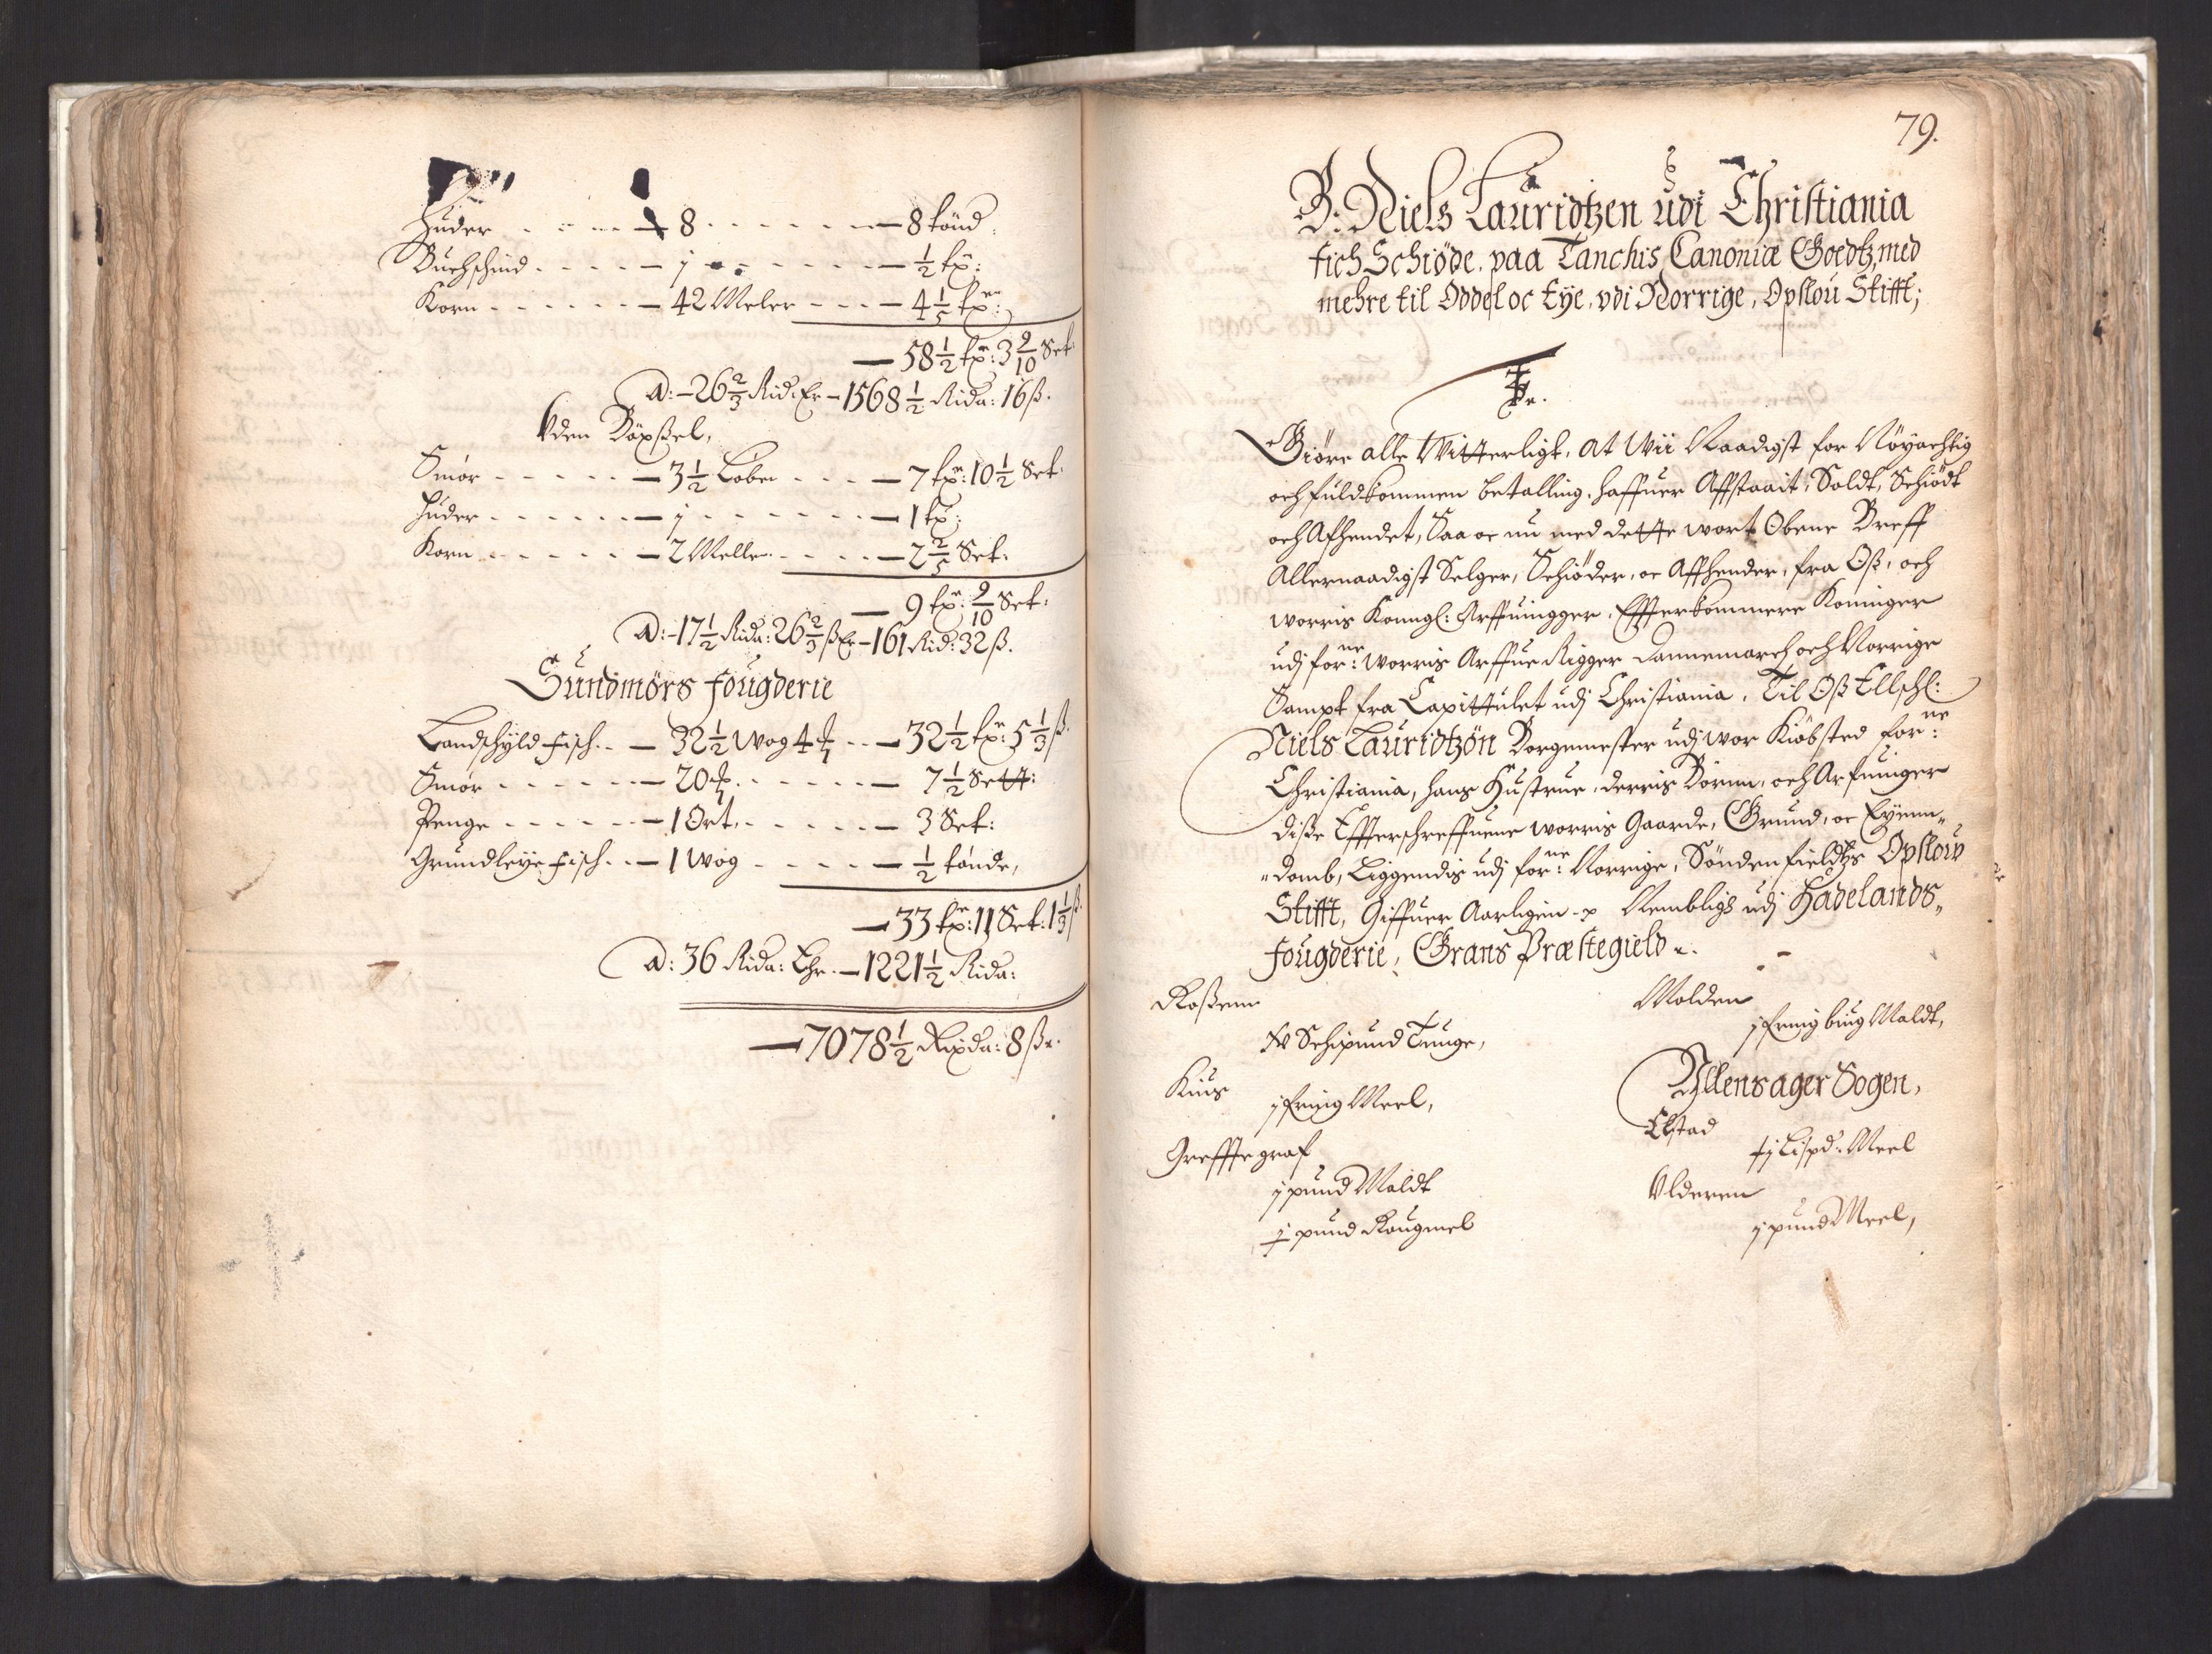 Huder - - - - 8 - - - - - - 8 tönd:
Buchschind - - - - j - - - - - ½ tp:
Korn - - - - - - 42 Meler - - - 4 1/5 tpr:
58½ tpr: 3 9/10 Set:
A: - 26⅔ Rid: Er - 1568½ Rida: 16 ß.
Vden Böxsel,
Smör - - - - - 3½ Løber - - - 7 tpr: 10½ Set:
Huder - - - - - - j - - - - - - 1 tp:
Korn - - - - - 2 Meller - - - - 2 2/5 Set:
9 tpr: 9/10 Set:
A: - 17½ Rida: 26⅔ ß Er - 161 Rid: 32 ß.
Sundmörs fougderie
Landschyld fisch - - 32½ Wog 4 - - - 32½ tpr: 5⅓ ß.
Smör - - - - - - 20 - - - - - - 7½ Sett:
Penge - - - - - - 1 Ort, - - - - - - 3 Set:
Grundleye fisch - - - 1 Wog - - - - - ½ tønde,
33 tpr: 11 Set: 1⅓ ß
A: 36 Rida: Ehr. - 1221½ Rida:
7078½ Rixda: 8 ß.
79.
B: Niels Lauridtzen udi Christiania
fich Schiöde, paa Tanchis Canoniæ Goedtz, med
mehre til Oddel oc Eÿe, vdi Norrige, Opslou Stifft;
Giöre alle Witterligt, at Wii Naadigst for Nöyachtig
och fuldkommen betalling, haffuer Affstaait, Soldt, Schiödt
och Afhendet, Saa oc nu med dette wort Obene Breff
Allernaadigst Selger, Schiöder, oc Affhender, fra Oß, och
worris Konngl: Arffuingger, Effterkommere Koninger
udj forne: worris Arffue Rigger Dannemarch och Norrige
Sampt fra Capittulet udj Christiania, Til Oß Ellschl:
Niels Lauridtzön Borgemester udj wor Kiöbsted forne:
Christiania, hans Hustrue, derris Börnn, och Arfuinger
diße Effterschreffuene worris Gaarde, Grund, oc Eyenn„
„domb, Liggendis udj forne: Norrige, Söndenfieldtz Opslow
Stifft, Giffuer Aarligen - Nembligs udj Hadelands„
fougderie, Grans Præstegield.
Roßenn
Schipund Tunge,
Kius
j fring Meel,
Grefftegraf
j pund Maldt
j pund Rougmel
Molden
j fring bÿg Maldt,
Ullensager Sogen,
Elstad
ij Lispd: Meel
Vlderen
j pund Meel,